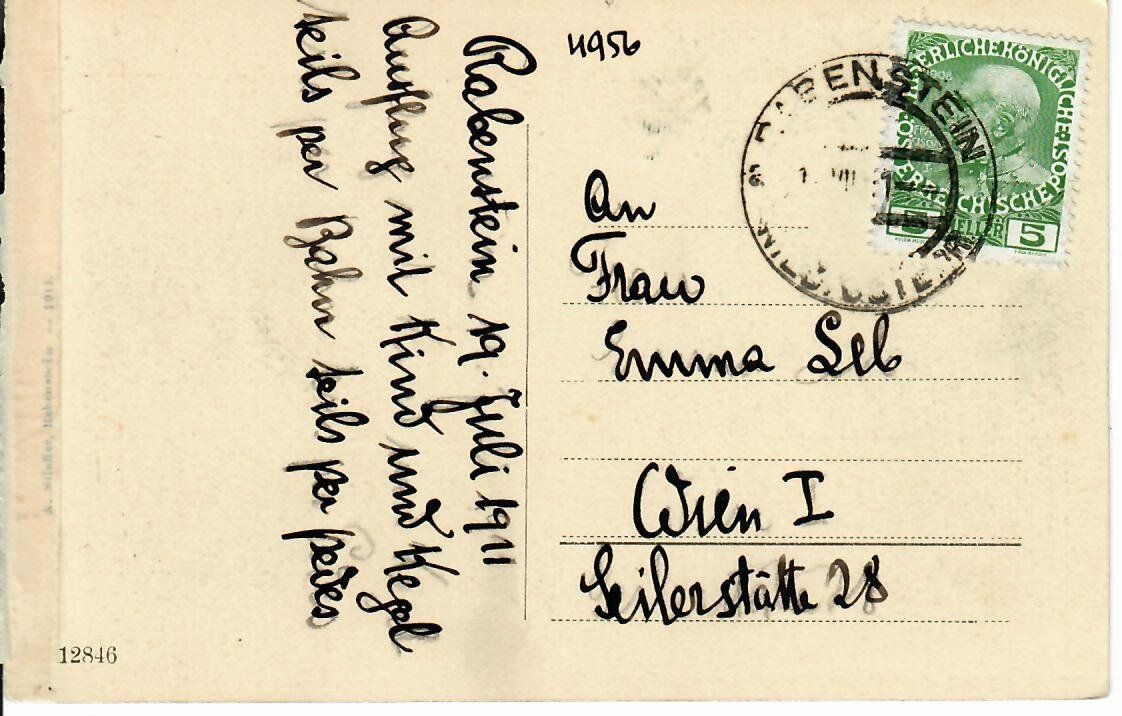 4956
Rabenstein 19. Juli 1911
Ausflug mit Kind und Kegel
teils per Bahn teils per pedes
An
Frau
Emma Leb
Wien I
Seilerstätte 28
RABENSTEIN
5 HELLER 5
12846
Rabenstein — 1911